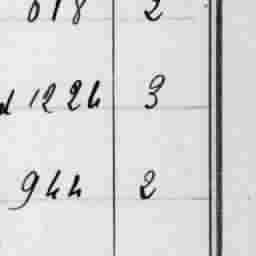 618 2
1224 3
944 2